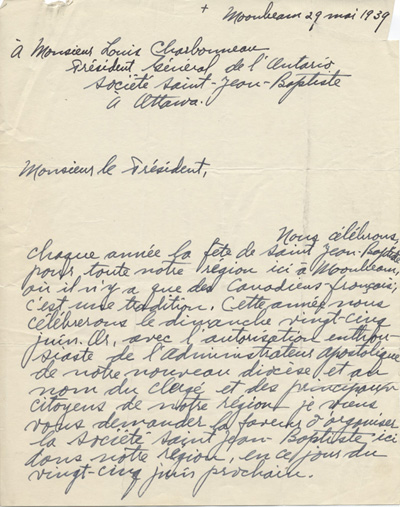 + Moonbeam 29 mai 1939
à Monsieur Louis Charbonneau
Président Général de l'Ontario
Société Saint-Jean-Baptiste
à Ottawa.
Monsieur le Président,
Nous célébrons,
chaque année la fête de Saint Jean-Baptiste
pour toute notre région ici à Moonbeam,
où il n'y a que des Canadiens-français;
c'est une tradition. Cette année nous
célébrerons le dimanche vingt-cinq
juin. Or, avec l'autorisation enthou-
siaste de l'Administrateur Apostolique
de notre nouveau diocèse et au
nom du clergé et des principaux
citoyens de notre région je viens
vous demander la faveur d'organiser
la Société Saint Jean-Baptiste ici
dans notre région, en ce jour du
vingt-cinq juin prochain.